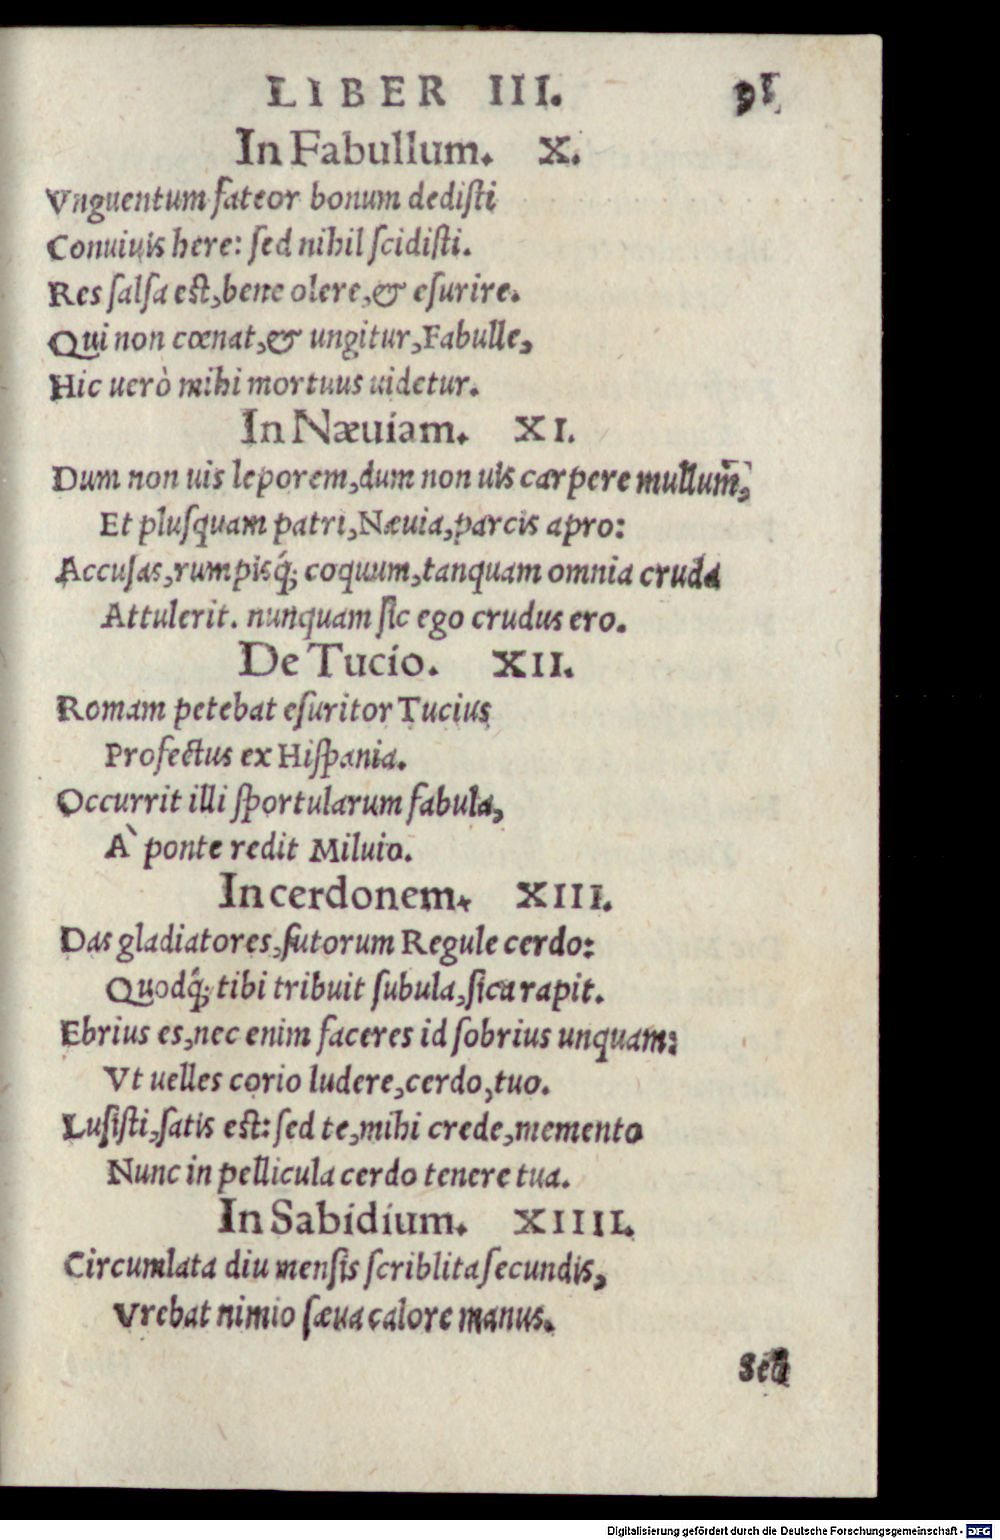 LIBER III. 91
In Fabullum. X.
Vnguentum fateor bonum dediſti
Conuiuis here: ſed nihil ſcidiſti.
Res ſalſa eſt, bene olere, & eſurire.
Qui non cœnat, & ungitur, Fabulle,
Hic uerò mihi mortuus uidetur.
In Næuiam. XI.
Dum non uis leporem, dum non uis carpere mullum̄,
Et pluſquam patri, Næuia, parcis apro:
Accuſas, rumpisq́; coquum, tanquam omnia cruda
Attulerit. nunquam ſic ego crudus ero.
De Tucio. XII.
Romam petebat eſuritor Tucius
Profectus ex Hiſpania.
Occurrit illi ſportularum fabula,
A` ponte redit Miluio.
In cerdonem. XIII.
Das gladiatores, ſutorum Regule cerdo:
Quodq́; tibi tribuit ſubula, ſica rapit.
Ebrius es, nec enim faceres id ſobrius unquam:
Vt uelles corio ludere, cerdo, tuo.
Luſiſti, ſatis eſt: ſed te, mihi crede, memento
Nunc in pellicula cerdo tenere tua.
In Sabidium. XIIII.
Circumlata diu menſis ſcriblita ſecundis,
Vrebat nimio ſæua calore manus.
Sed
Digitalisierung gefördert durch die Deutsche Forschungsgemeinschaft - DFG